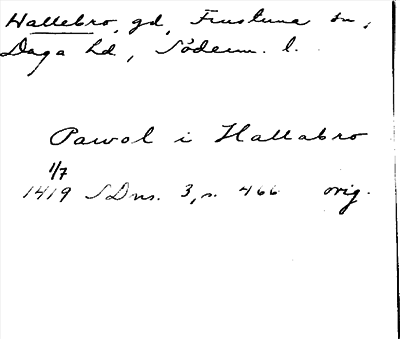 Hallebro, gd, Frustuna sn,
Daga hd, Söderm. l.
Pawol i Hallabro
1/7
1419 SDns. 3, s. 466 orig.